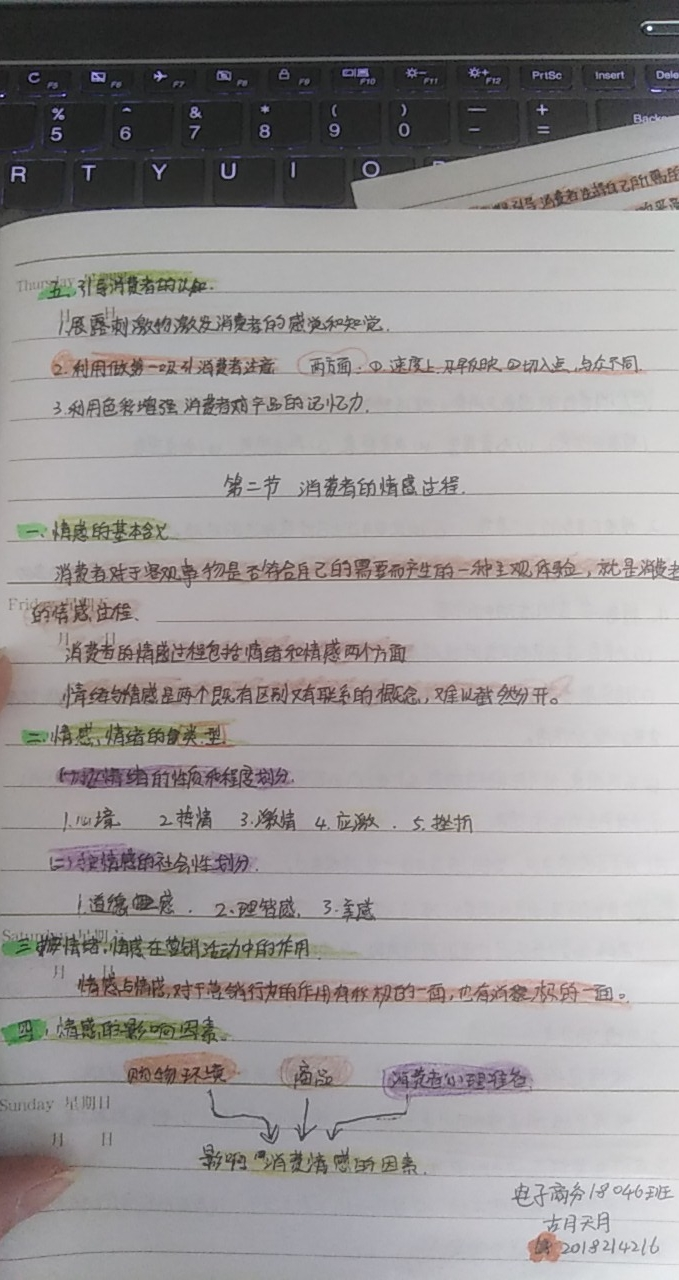 F5 F6 F7 F8 F9 F10 F11 F12 PrtSc Insert Dele
% ^ & * ( ) — +
5 6 7 8 9 0 - = Back
R T Y U I O
消费者选择自己所需的
Thursday 星期四
五、引导消费者的认知.
月 日
1.展露刺激物激发消费者的感觉和知觉.
2.利用做第一吸引消费者注意 两方面:①速度上,及早反映 ②切入点,与众不同.
3.利用色彩增强消费者对产品的记忆力.
第二节 消费者的情感过程.
一、情感的基本含义
消费者对于客观事物是否符合自己的需要而产生的一种主观体验,就是消费者
Friday 星期五
的情感过程.
月 日
消费者的情感过程包括情绪和情感两个方面
情绪与情感是两个既有区别又有联系的概念,难以截然分开。
二、情感,情绪的类型
(一)按情绪的性质和程度划分.
1.心境 2.热情 3.激情 4.应激. 5.挫折
(二)按情感的社会性划分.
1.道德感. 2.理智感. 3.美感
Saturday 星期六
三、情绪,情感在营销活动中的作用.
月 日
情感与情感,对于营销行为的作用有积极的一面,也有消极的一面。
四、情感的影响因素。
购物环境 商品 消费者心理准备
Sunday 星期日
月 日
影响消费情感的因素.
电子商务18046班
古月天月
2018214216